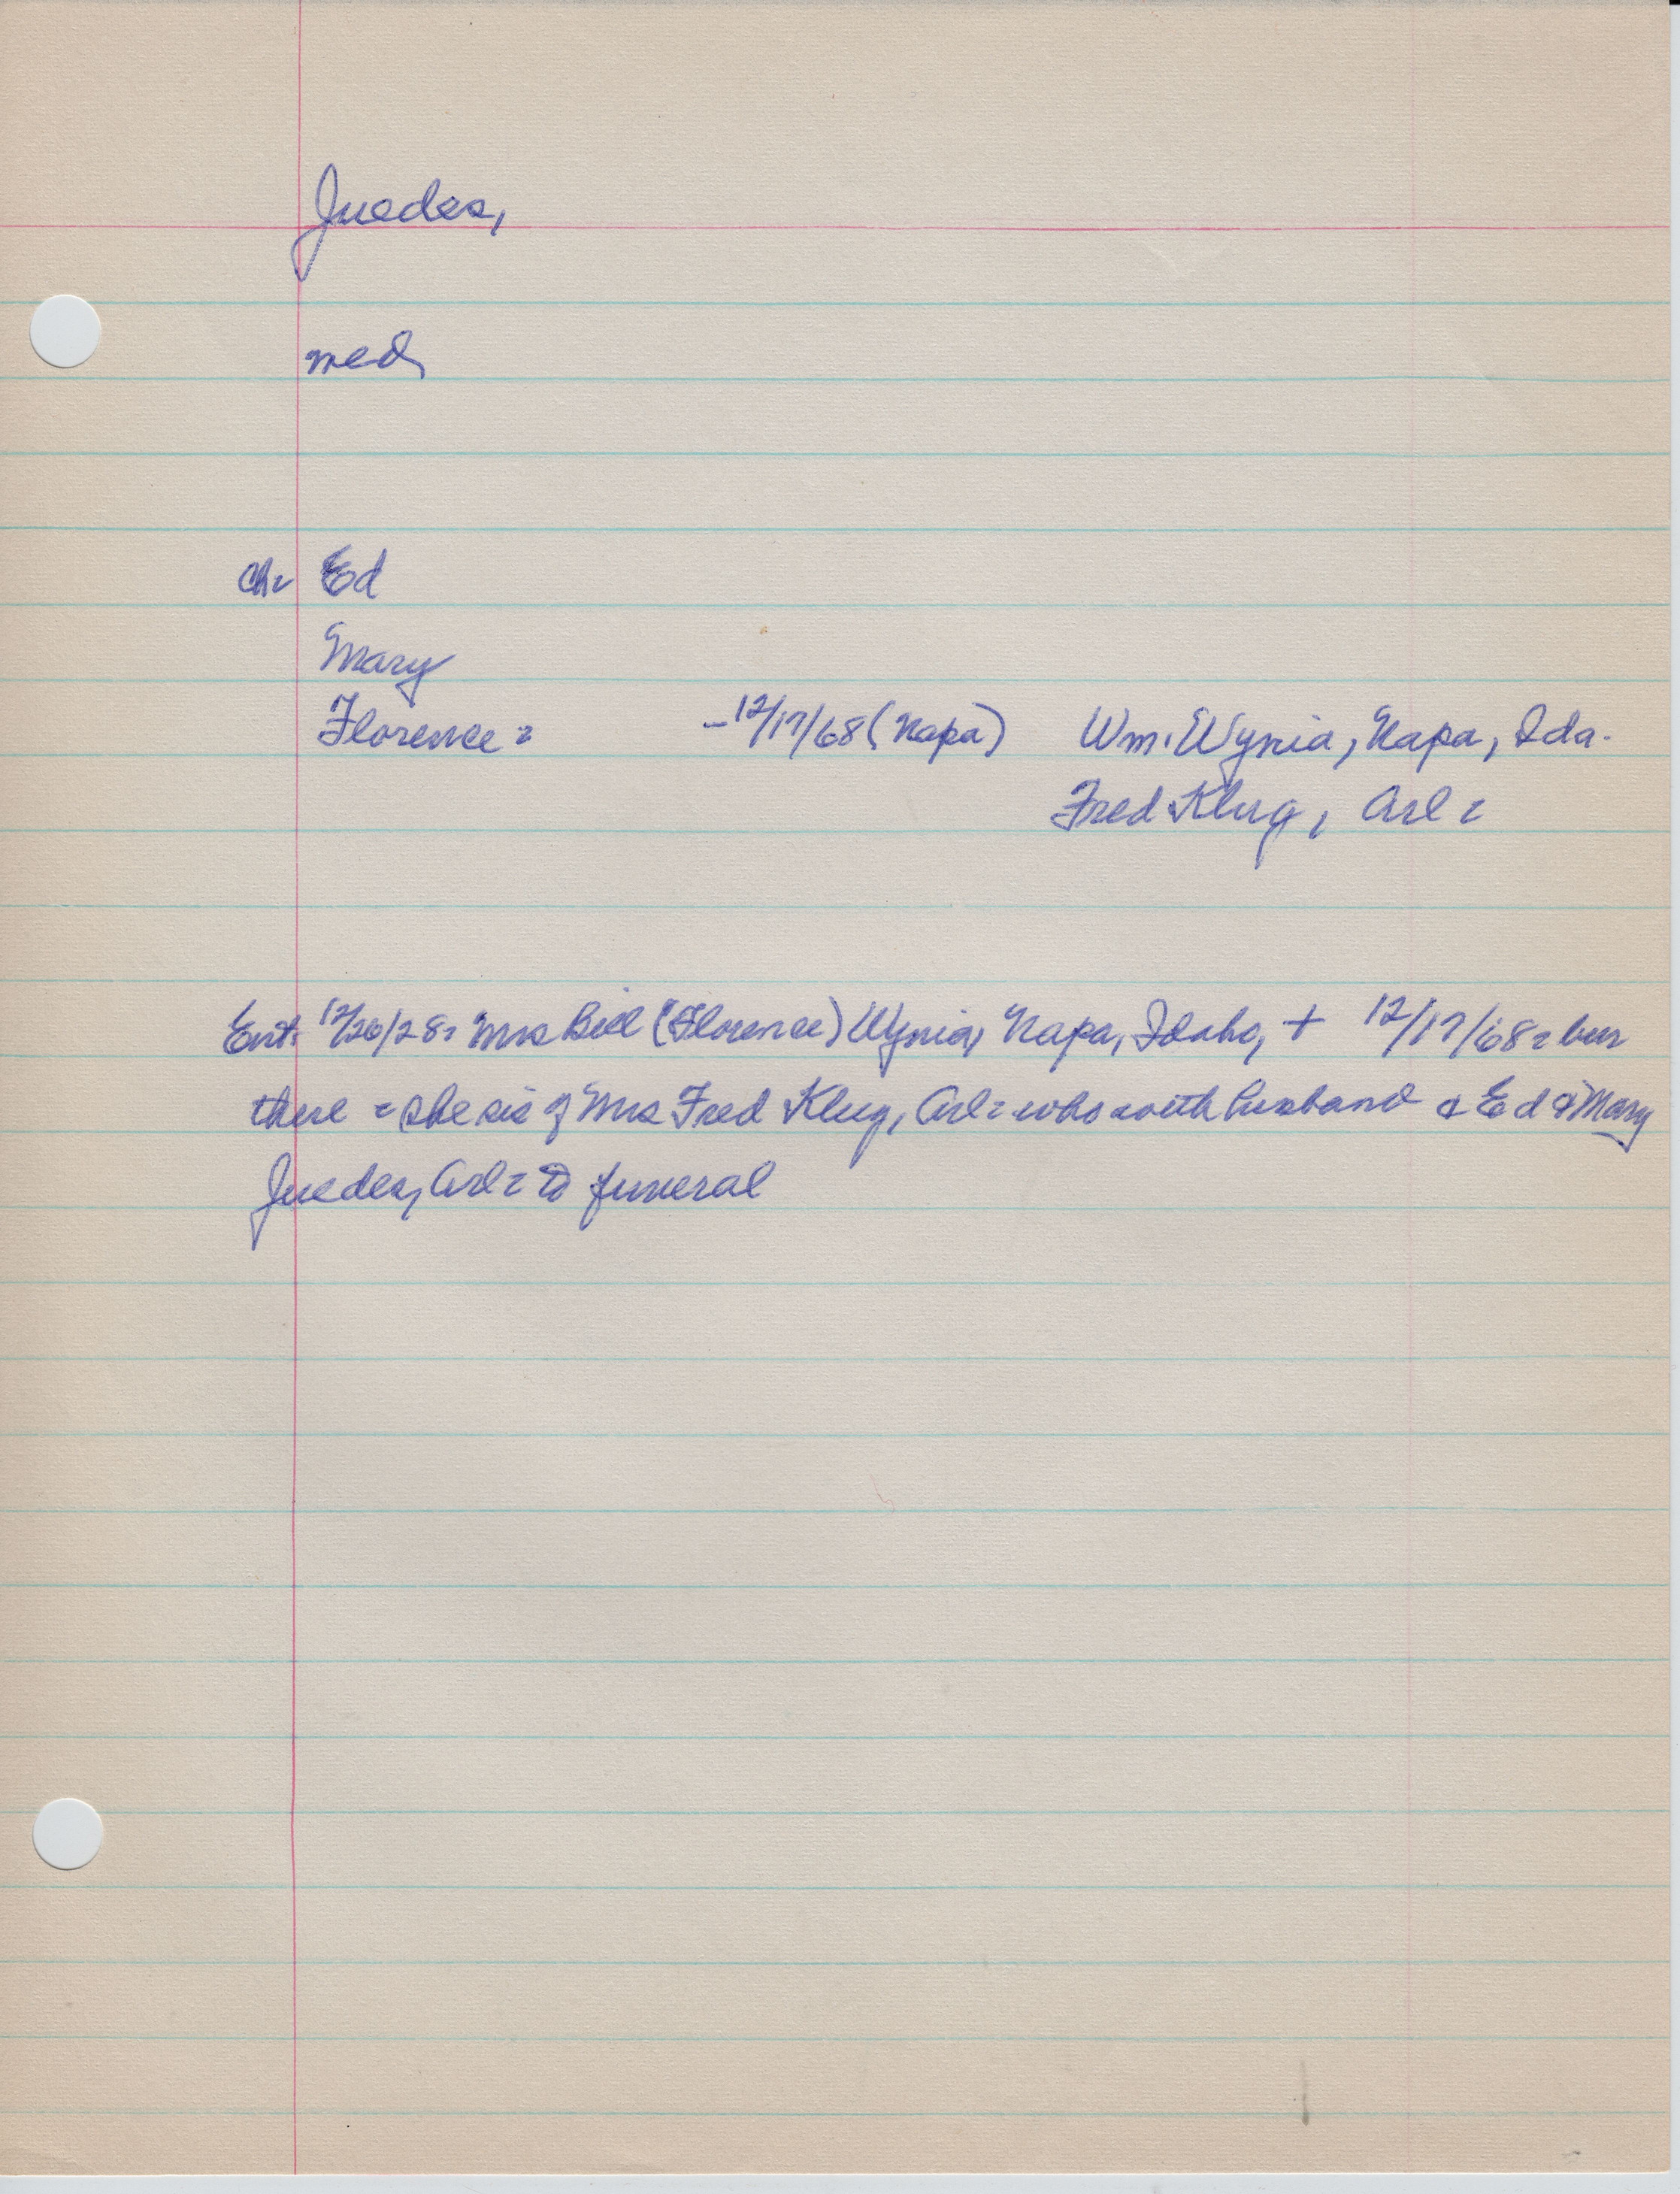 Juedes,
med
Ch: Ed
Mary
Florence: -12/17/68 (Napa) Wm. Wynia, Napa, Ida.
Fred Klug, Arl:
Ent. 12/26/28: Mrs Bill (Florence) Wynia, Napa, Idaho, + 12/17/68: bur
there: she sis of Mrs Fred Klug, Arl: who with husband & Ed & Mary
Juedes, Arl: to funeral